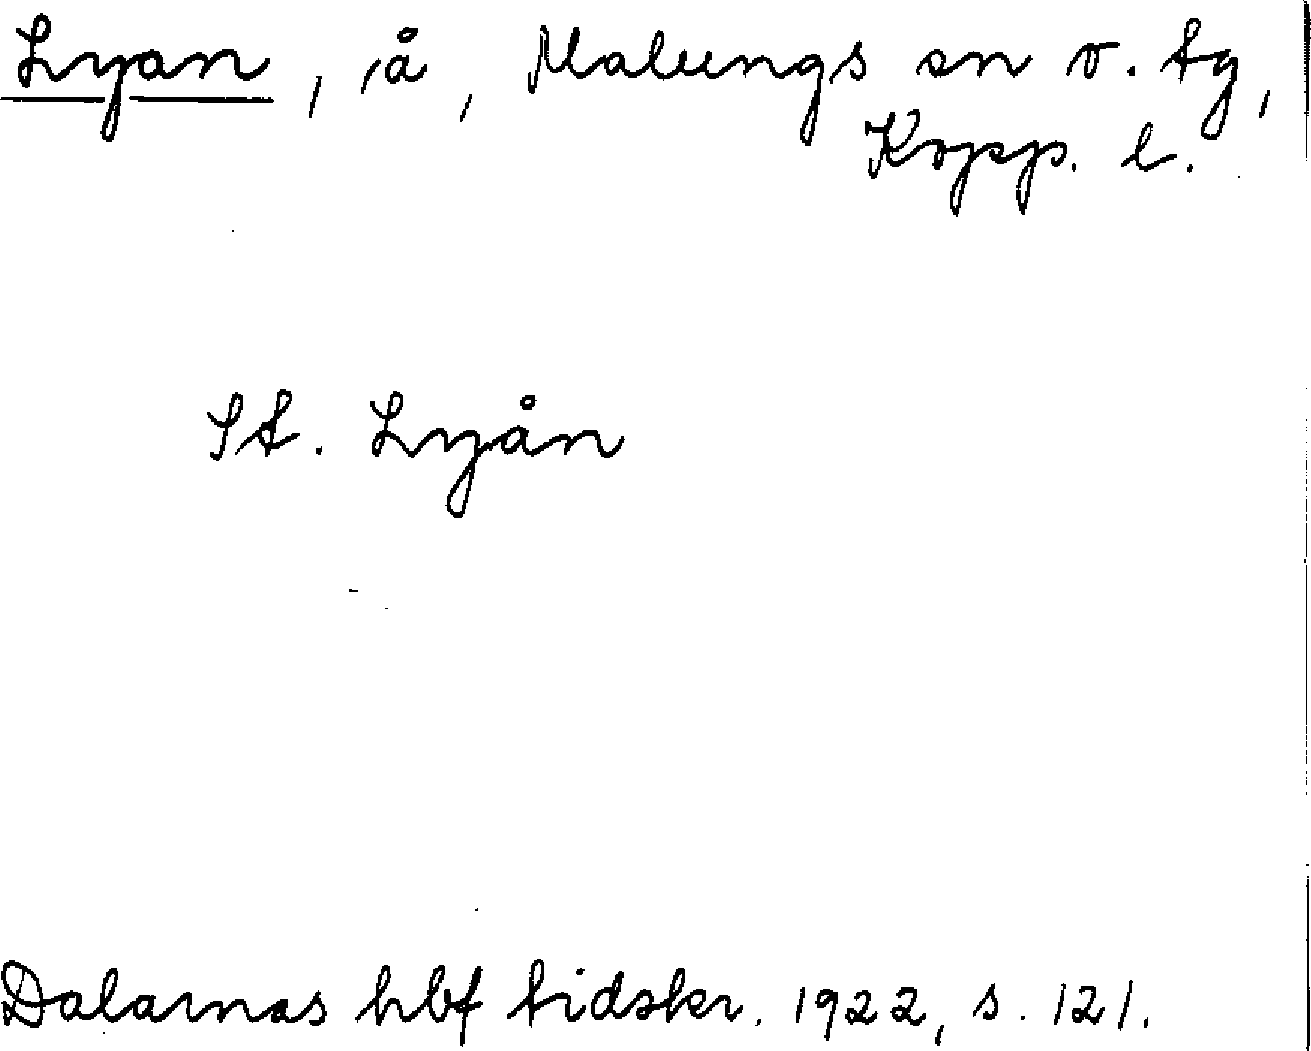 Lyan, å, Malungs sn v. tg,
Kopp. l.
St. Lyån
Dalarnas hbf tidskr. 1922, s. 121.